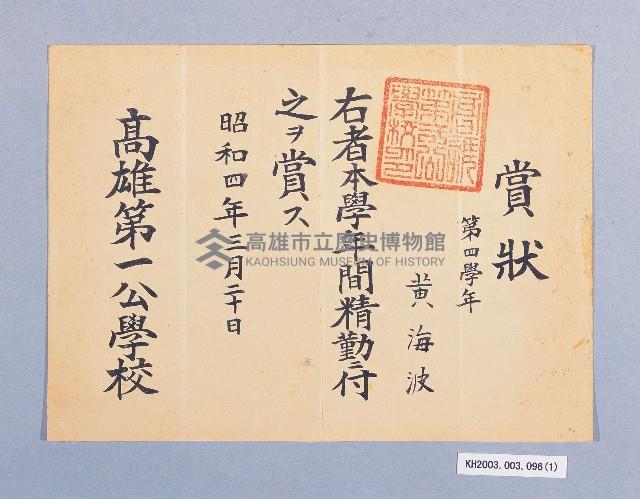 賞狀
第四學年
黄海波
右者本學年間精勤ニ付
之ヲ賞ス
昭和四年三月二十日
高雄第一公學校
高雄市立歷史博物館
KAOHSIUNG MUSEUM OF HISTORY
KH2003.003.096(1)